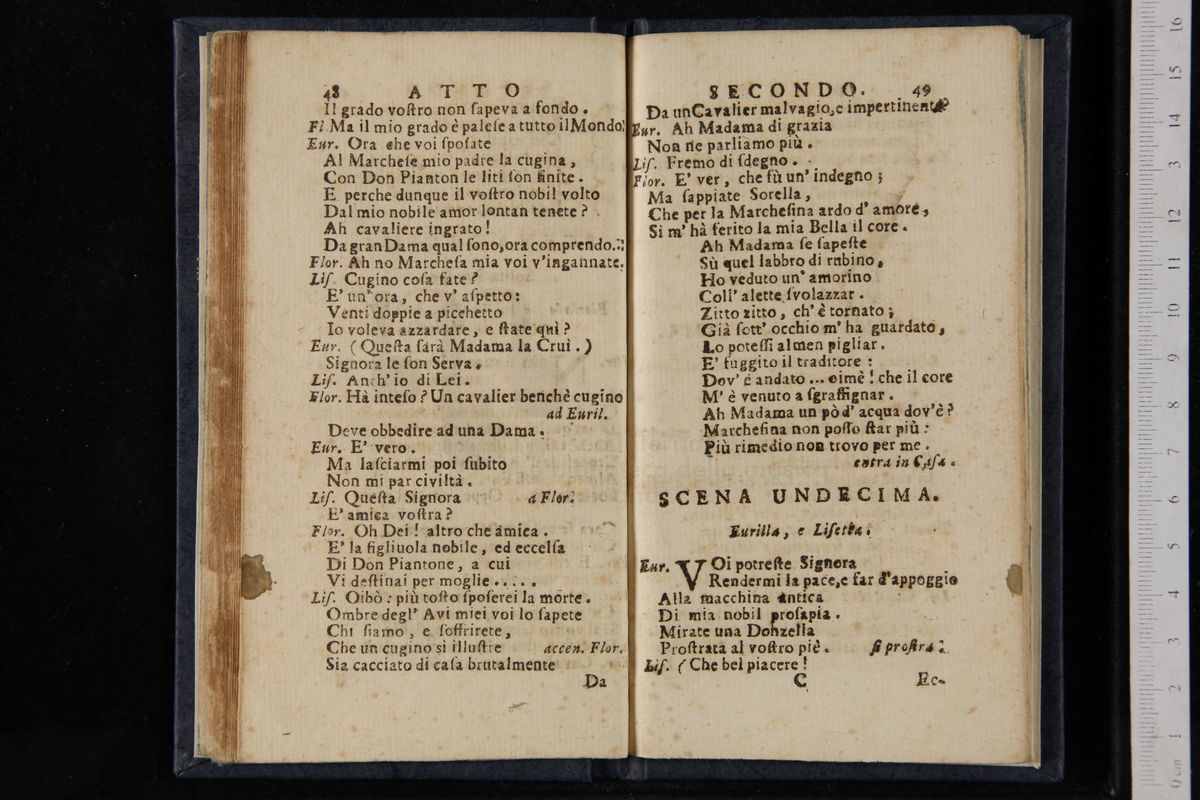 48 ATTO
Il grado voſtro non ſapeva a fondo.
Fl Ma il mio grado è paleſe a tutto il Mondo.
Eur. Ora che voi ſpoſate
Al Marcheſe mio padre la cugina,
Con Don Pianton le liti ſon finite.
E perche dunque il voſtro nobil volto
Dal mio nobile amor lontan tenete?
Ah cavaliere ingrato!
Da gran Dama qual ſono, ora comprendo..
Flor. Ah no Marcheſa mia voi v'ingannate.
Liſ. Cugino coſa fate?
E' un' ora, che v' aſpetto:
Venti doppie a picchetto
Io voleva azzardare, e ſtate quì?
Eur. (Queſta ſarà Madama la Cruì.)
Signora le ſon Serva.
Liſ. Anch' io di Lei.
Flor. Hà inteſo? Un cavalier benchè cugino
ad Euril.
Deve obbedire ad una Dama.
Eur. E' vero.
Ma laſciarmi poi ſubito
Non mi par civiltà.
Liſ. Queſta Signora a Flor.
E' amica voſtra?
Flor. Oh Dei! altro che amica.
E' la figliuola nobile, ed eccelſa
Di Don Piantone, a cui
Vi deſtinai per moglie.....
Liſ. Oibò: più toſto ſpoſerei la morte.
Ombre degl' Avi miei voi lo ſapete
Chi ſiamo, e ſoffrirete,
Che un cugino si illuſtre accen. Flor.
Sia cacciato di caſa brutalmente
Da
SECONDO. 49
Da un Cavalier malvagio, e impertinente?
Eur. Ah Madama di grazia
Non ne parliamo più.
Liſ. Fremo di ſdegno.
Flor. E' ver, che fù un' indegno;
Ma ſappiate Sorella,
Che per la Marcheſina ardo d' amore,
Si m' hà ferito la mia Bella il core.
Ah Madama ſe ſapeſte
Sù quel labbro di rubino,
Ho veduto un' amorino
Coll' alette ſvolazzar.
Zitto zitto, ch' è tornato;
Già ſott' occhio m' ha guardato,
Lo poteſſi almen pigliar.
E' fuggito il traditore:
Dov' è andato ... oimè! che il core
M' è venuto a ſgraffignar.
Ah Madama un pò d' acqua dov'è?
Marcheſina non poſſo ſtar più:
Più rimedio non trovo per me.
entra in Caſa.
SCENA UNDECIMA.
Eurilla, e Liſetta.
Eur. VOi potreſte Signora
Rendermi la pace, e far d'appoggio
Alla macchina antica
Di mia nobil proſapia.
Mirate una Donzella
Proſtrata al voſtro piè. ſi proſtra.
Liſ. (Che bel piacere!
C Ec-
0 cm 1 2 3 4 5 6 7 8 9 10 11 12 13 14 15 16